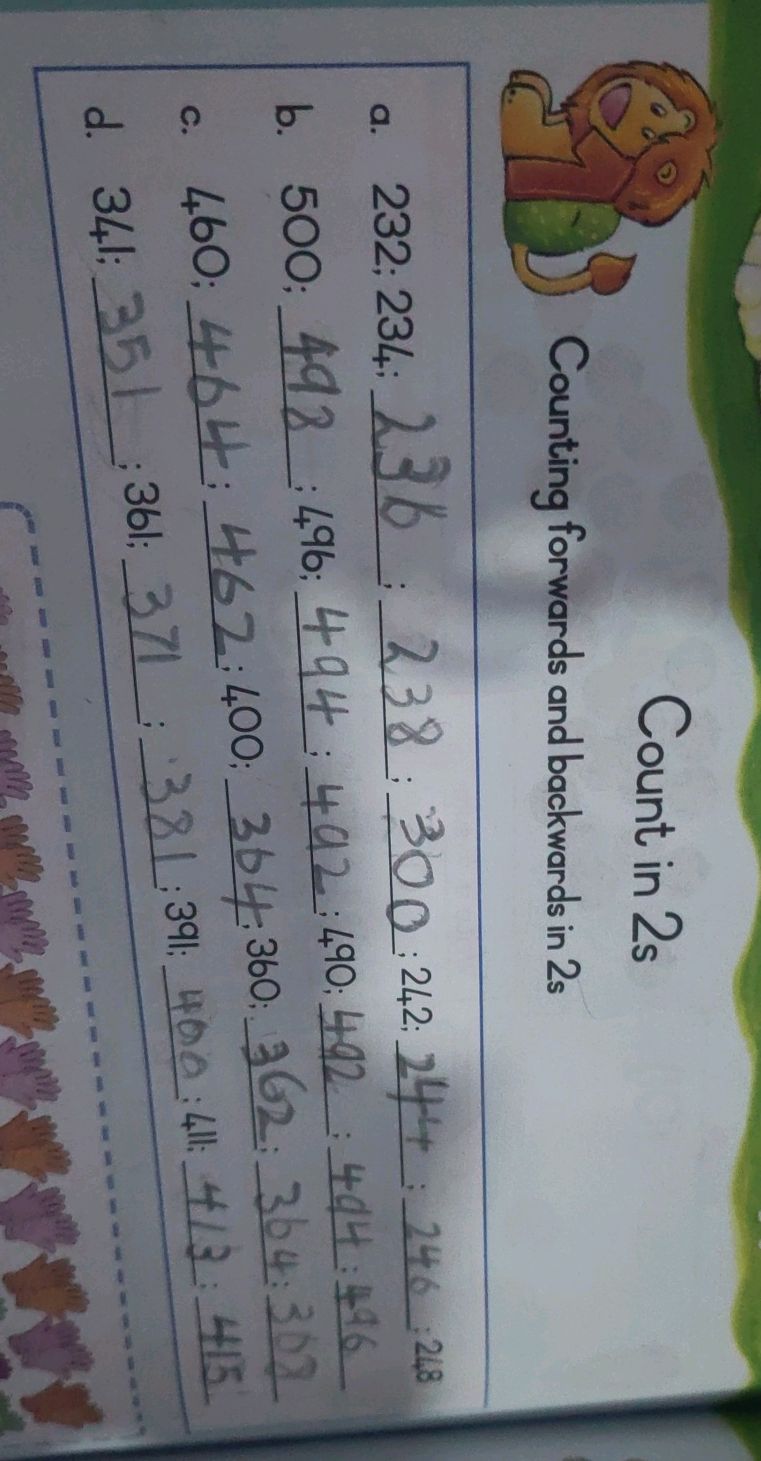 Count in 2s
Counting forwards and backwards in 2s
a. 232; 234; 236; 238; 300; 242; 244; 246; 248
b. 500; 498; 496; 494; 492; 490; 492; 494; 496
c. 460; 464; 462; 400; 364; 360; 362; 364; 368
d. 341; 351; 361; 371; 381; 391; 400; 411; 413; 415